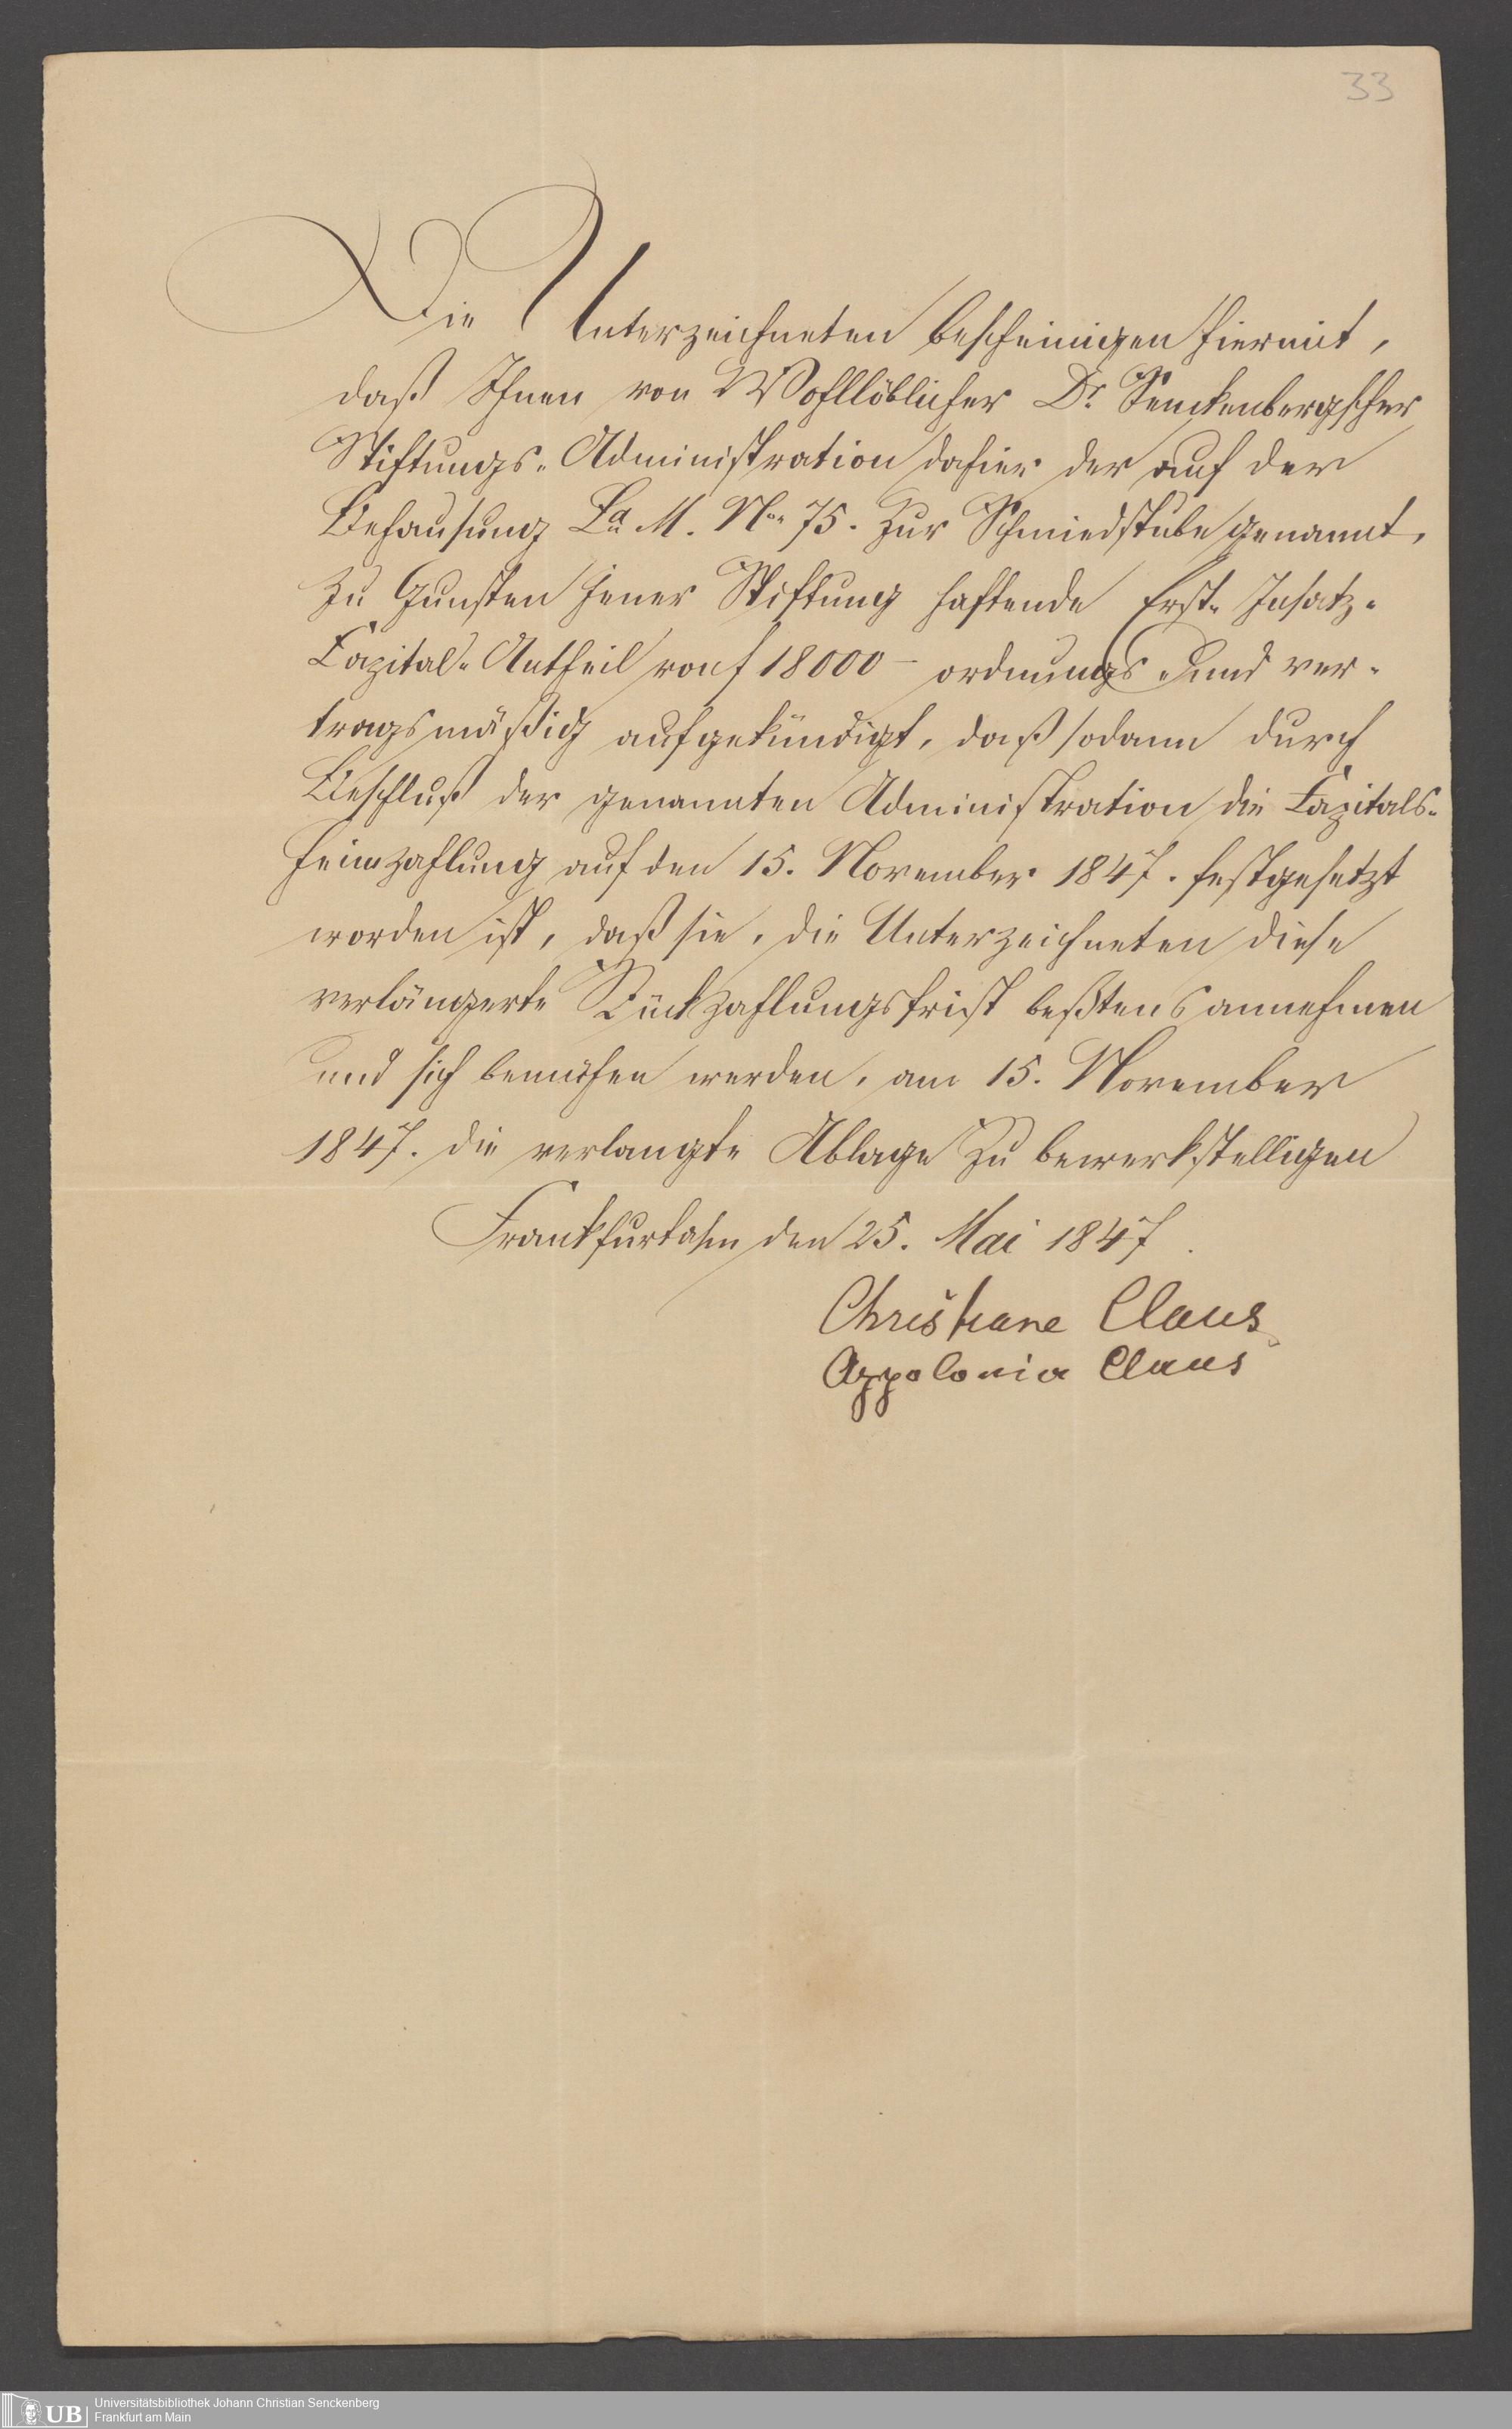 33
Die Unterzeichneten bescheinigen hiermit,
daß Ihnen von Wohllöblicher Dr. Senckenbergscher
Stiftungs-Administration dahier der auf der
Behausung La. M. No. 75. zur Schmiedstube genannt,
zu Gunsten jener Stiftung haftende Erst-Insatz-
Capital-Antheil von f 18000 – ordnungs- und ver-
tragsmäßig aufgekündigt, daß sodann durch
Beschluß der genannten Administration die Capitals-
heimzahlung auf den 15. November 1847. festgesetzt
worden ist, daß sie, die Unterzeichneten diese
verlängerte Rückzahlungsfrist beßtens annehmen
und sich bemühen werden, am 15. November
1847. die verlangte Ablage zu bewerkstelligen
Frankfurt a/m den 25. Mai 1847.
Christiane Claus
Appolonia Claus
UB
Universitätsbibliothek Johann Christian Senckenberg
Frankfurt am Main